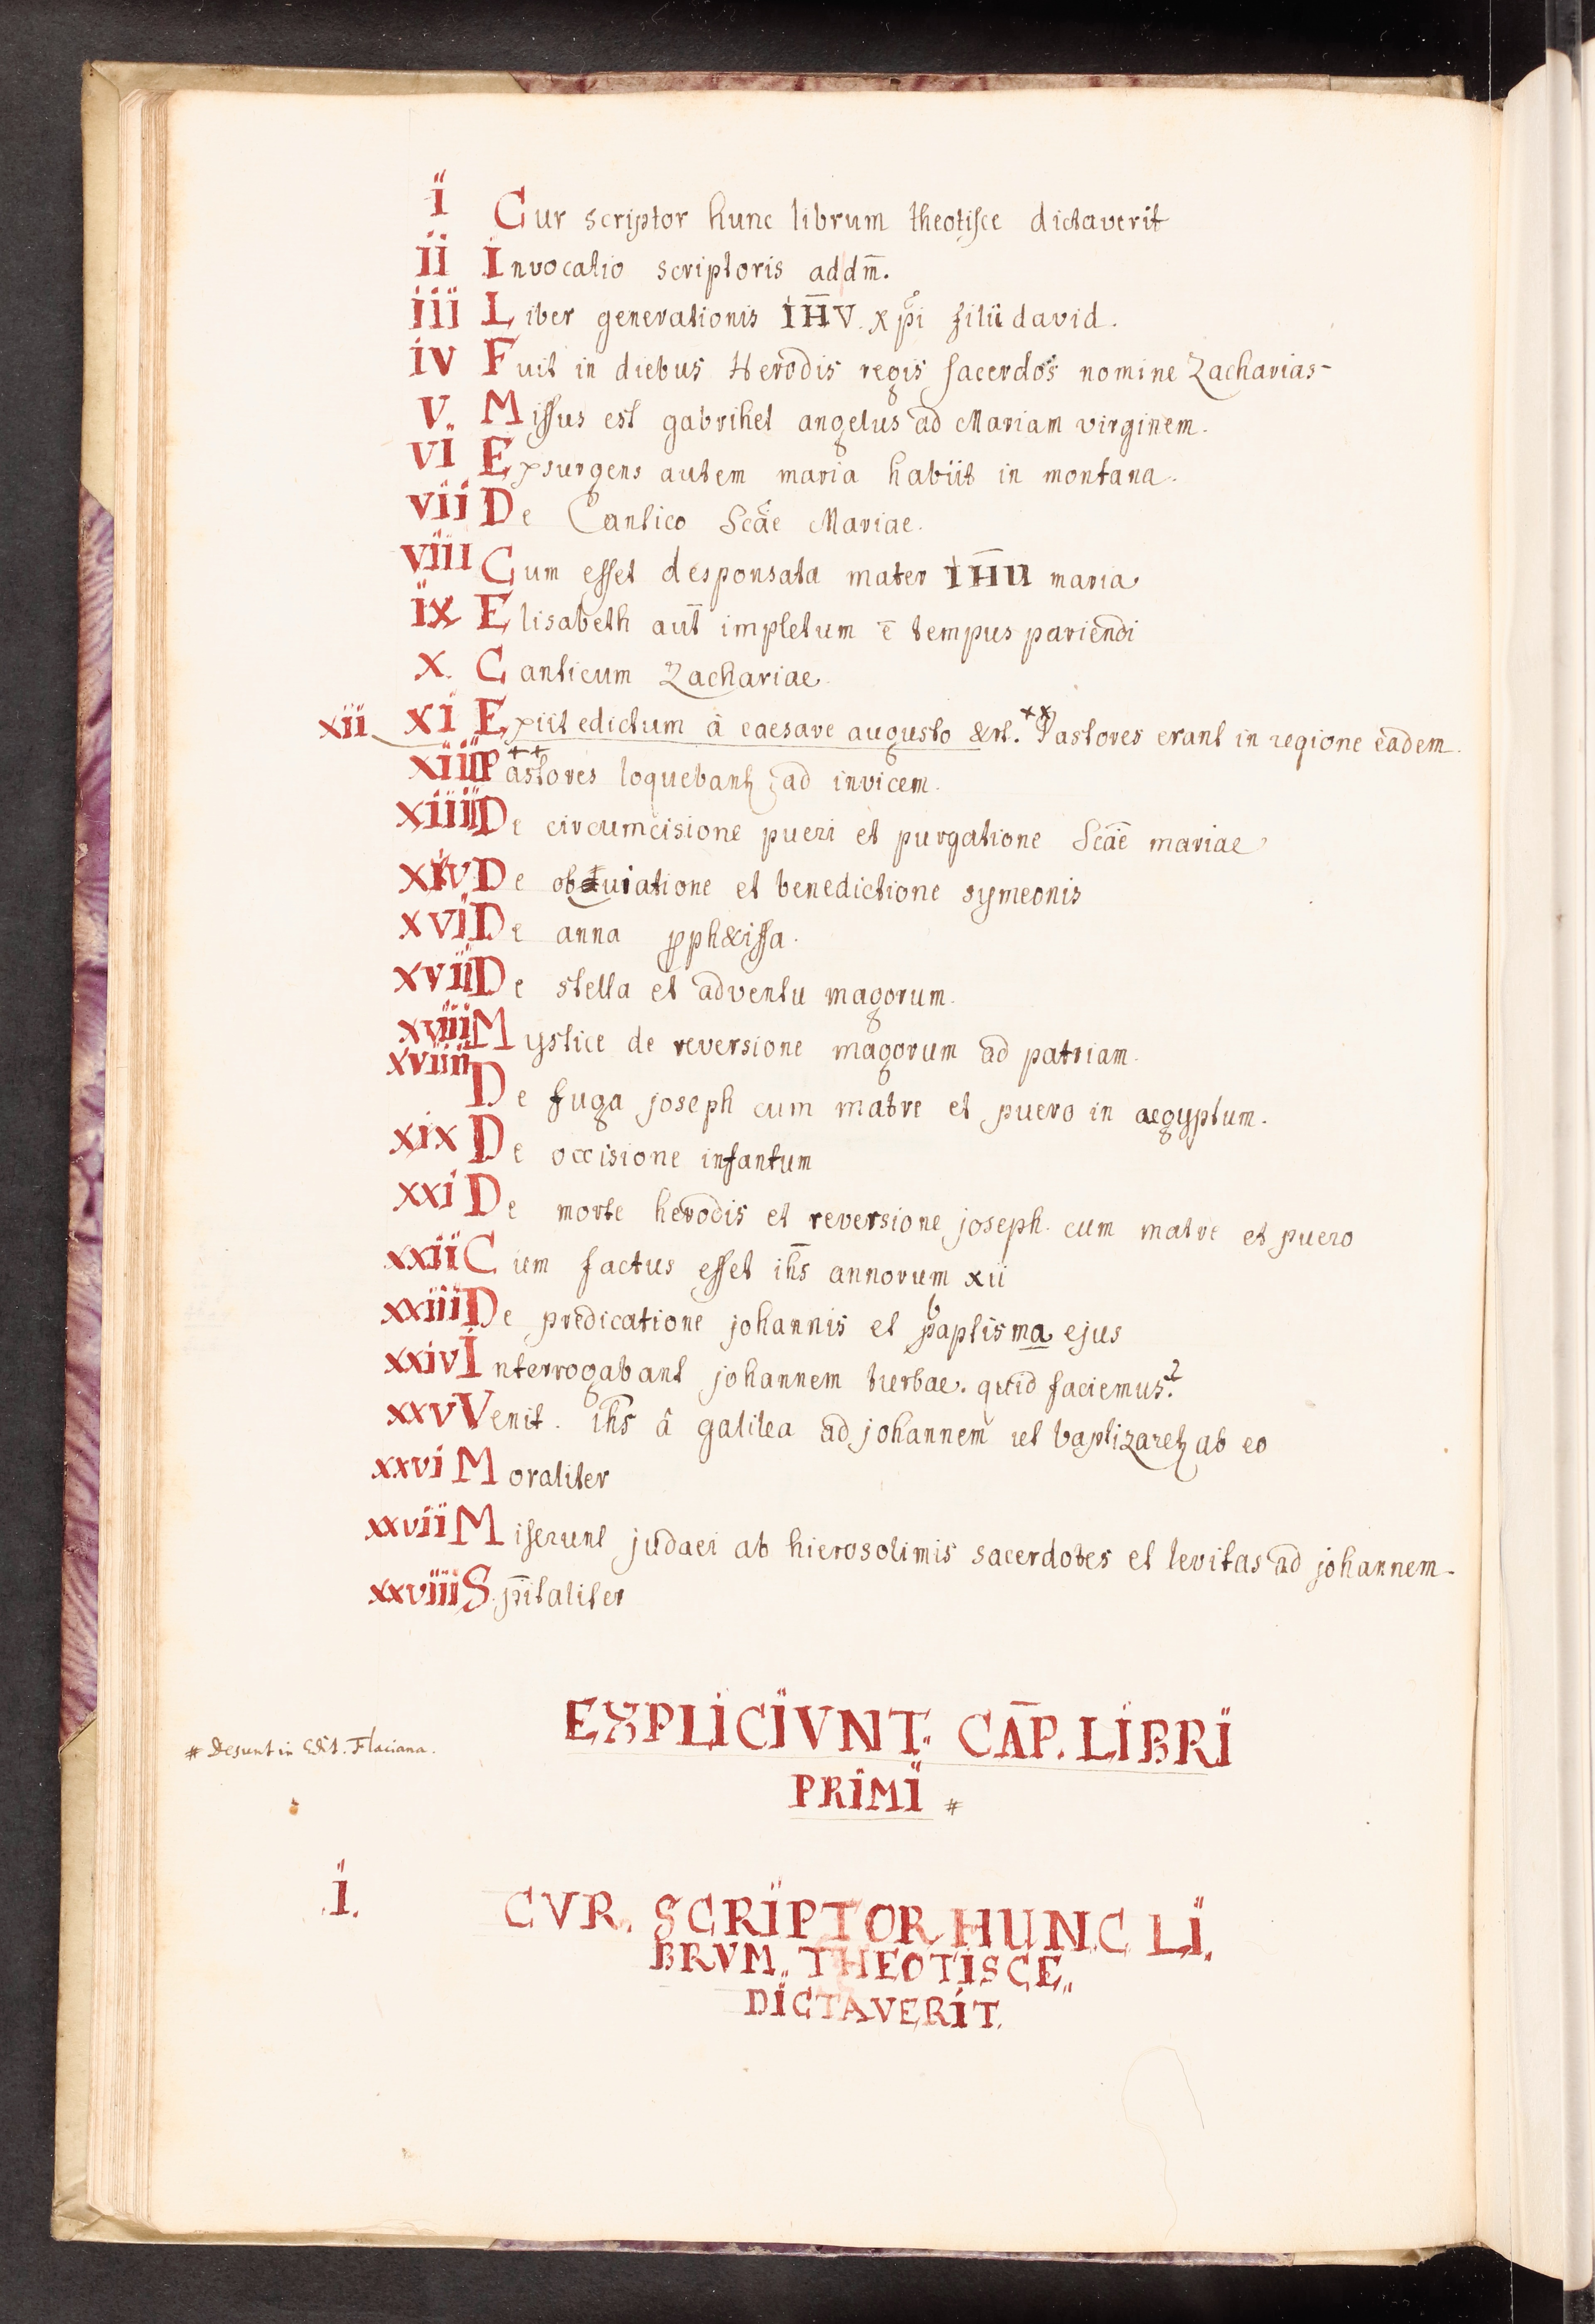 i Cur scriptor hunc librum theotisce dictaverit
ii Invocatio scriptoris addm̄.
iii Liber generationis IH̄V. xp̄i filii david.
iv Fuit in diebus Herodis regis sacerdos nomine Zacharias-
V. Missus est gabrihel angelus ad Mariam virginem.
vi Exsurgens autem maria habiit in montana.
vii De Cantico Scāe Mariae.
viii Cum esset desponsata mater IH̄U maria
ix Elisabeth aut̄ impletum ē tempus pariendi
x. Canticum Zachariae.
xii xi Exiit edictum â caesare augusto &rl. ++ Pastores erant in regione eadem.
xiii P++astores loquebant ad invicem.
xiiii De circumcisione pueri et purgatione Scāe mariae
xvDe obviatione et benedictione symeonis
xvi De anna pph&issa.
xvii De stella et adventu magorum.
xviii Mystice de reversione magorum ad patriam.
xviiii
De fuga joseph cum matre et puero in aegyptum.
xix De occisione infantum
xxi De morte herodis et reversione joseph. cum matre et puero
xxii Cum factus esset ih̄s annorum xii
xxiii De predicatione johannis et baptisma ejus
xxiv Interrogabant johannem turbae. quid faciemus?
xxv Venit. ih̄s â galilea ad johannem ut baptizaret ab eo
xxvi Moraliter
xxvii Miserunt judaei ab hierosolimis sacerdotes et levitas ad johannem-
xxviii S.pīitaliter
EXPLICIVNT. CAP̄. LIBRI
# Desunt in Edit. Flaciana.
PRIMI #
.i. CVR. SCRIPTOR HUNC LI.
BRVM,, THEOTISCE,,
DICTAVERIT.